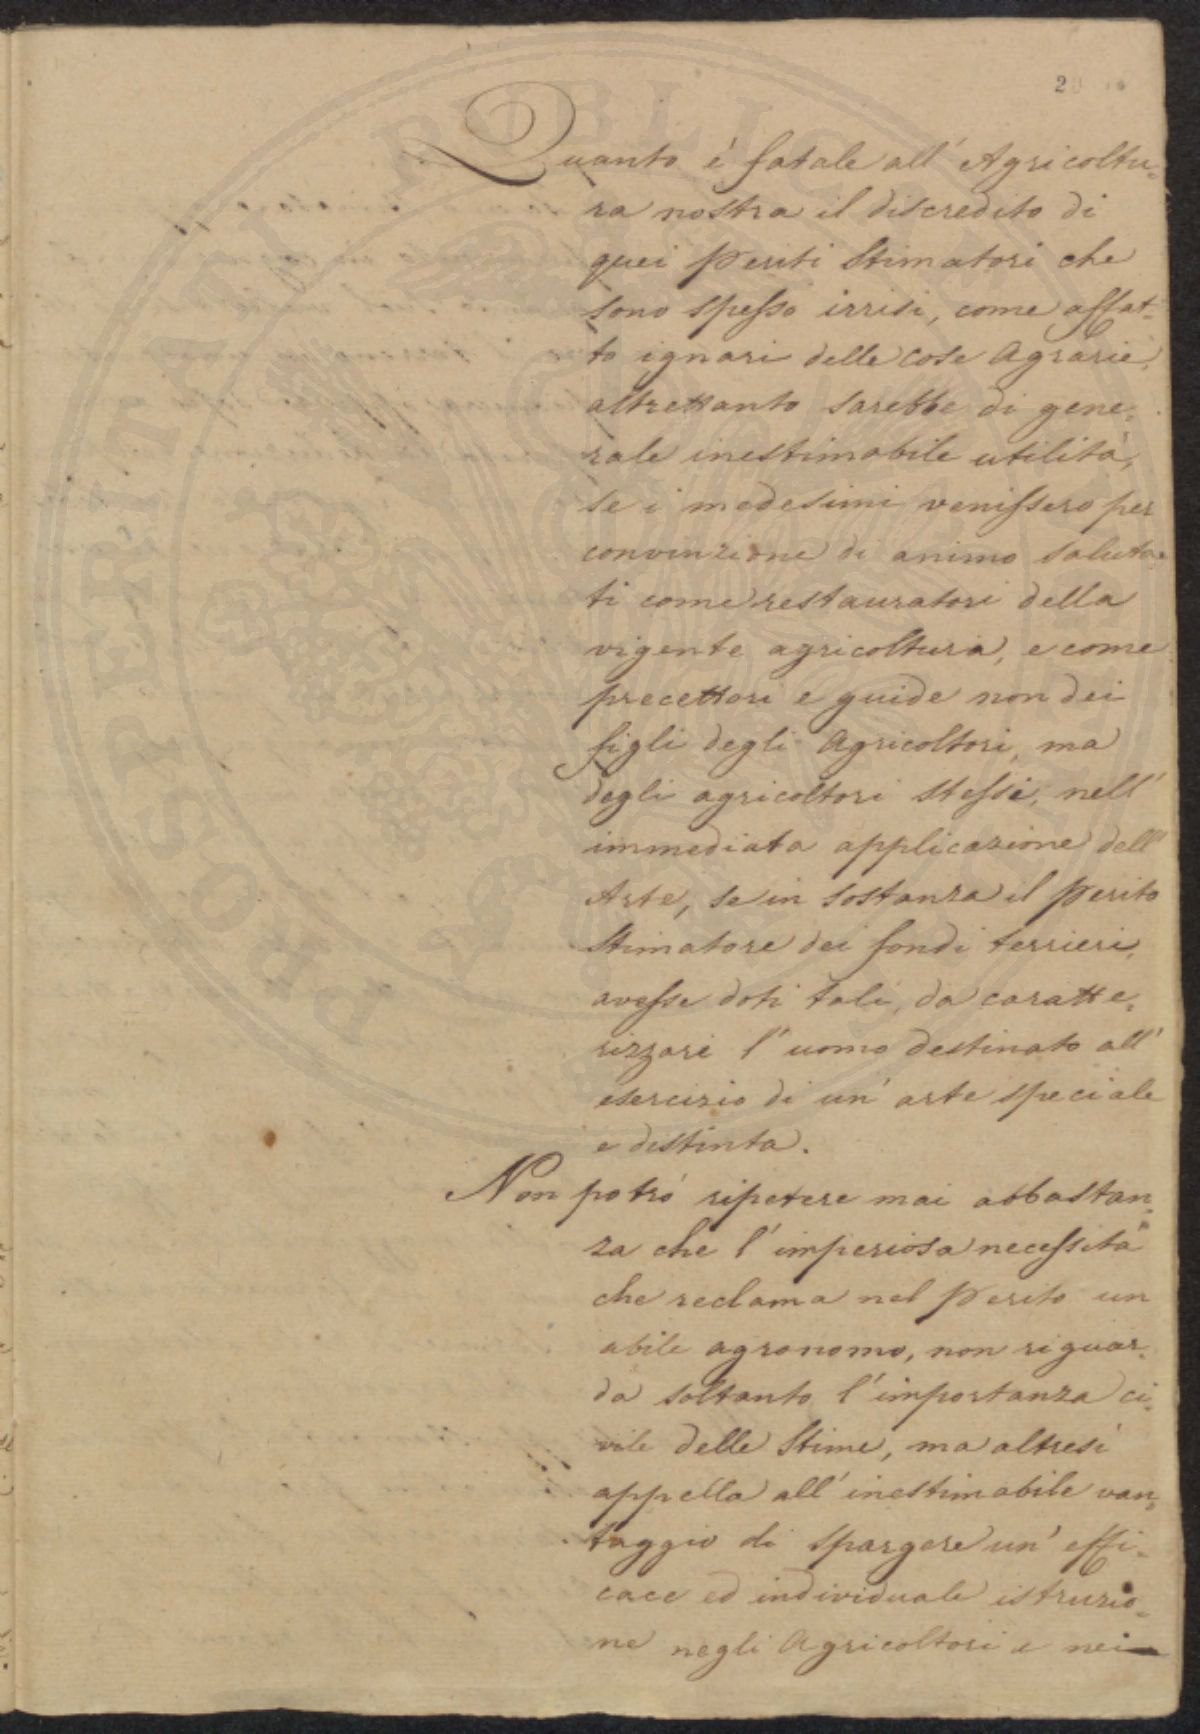 20
Quanto é fatale all' Agricoltu=
ra nostra il discredito di
quei Periti Stimatori che
sono spesso irrisi, come affat=
to ignari delle cose Agrarie,
altrettanto sarebbe di gene=
rale inestimabile utilità,
se i medesimi venissero per
convinzione di animo saluta=
ti come restauratori della
vigente agricoltura, e come
precettori e guide non dei
figli degli Agricoltori, ma
degli agricoltori stessi, nell'
immediata applicazione dell'
Arte, se in sostanza il Perito
Stimatore dei fondi terrieri,
avesse doti tali, da caratte=
rizzare l'uomo destinato all'
esercizio di un' arte speciale
e distinta.
Non potró ripetere mai abbastan=
za che l'imperiosa necessità
che reclama nel Perito un
abile agronomo, non riguar=
da soltanto l'importanza ci=
vile delle Stime, ma altresì
appella all'inestimabile van=
taggio di spargere un' effi=
cace ed individuale istruzio=
ne negli Agricoltori e nei
PROSPERITATI PUBLICAE